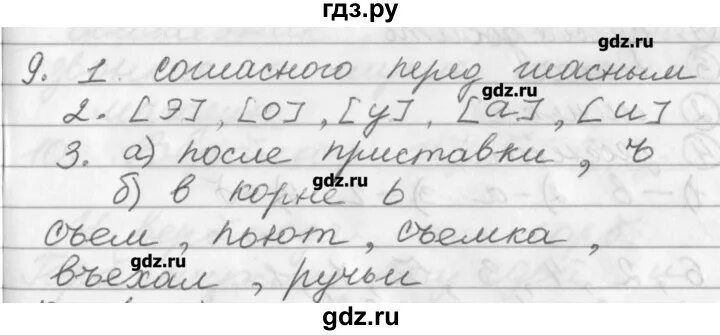 гдз.ру
9. 1. согласного перед гласным
gdz.ru
2. [э], [о], [у], [а], [и]
3. а) после приставки, ъ
б) в корне ь
gdz.ru
съем, пьют, съемка,
въехал, ручьи
gdz.ru
gdz.ru